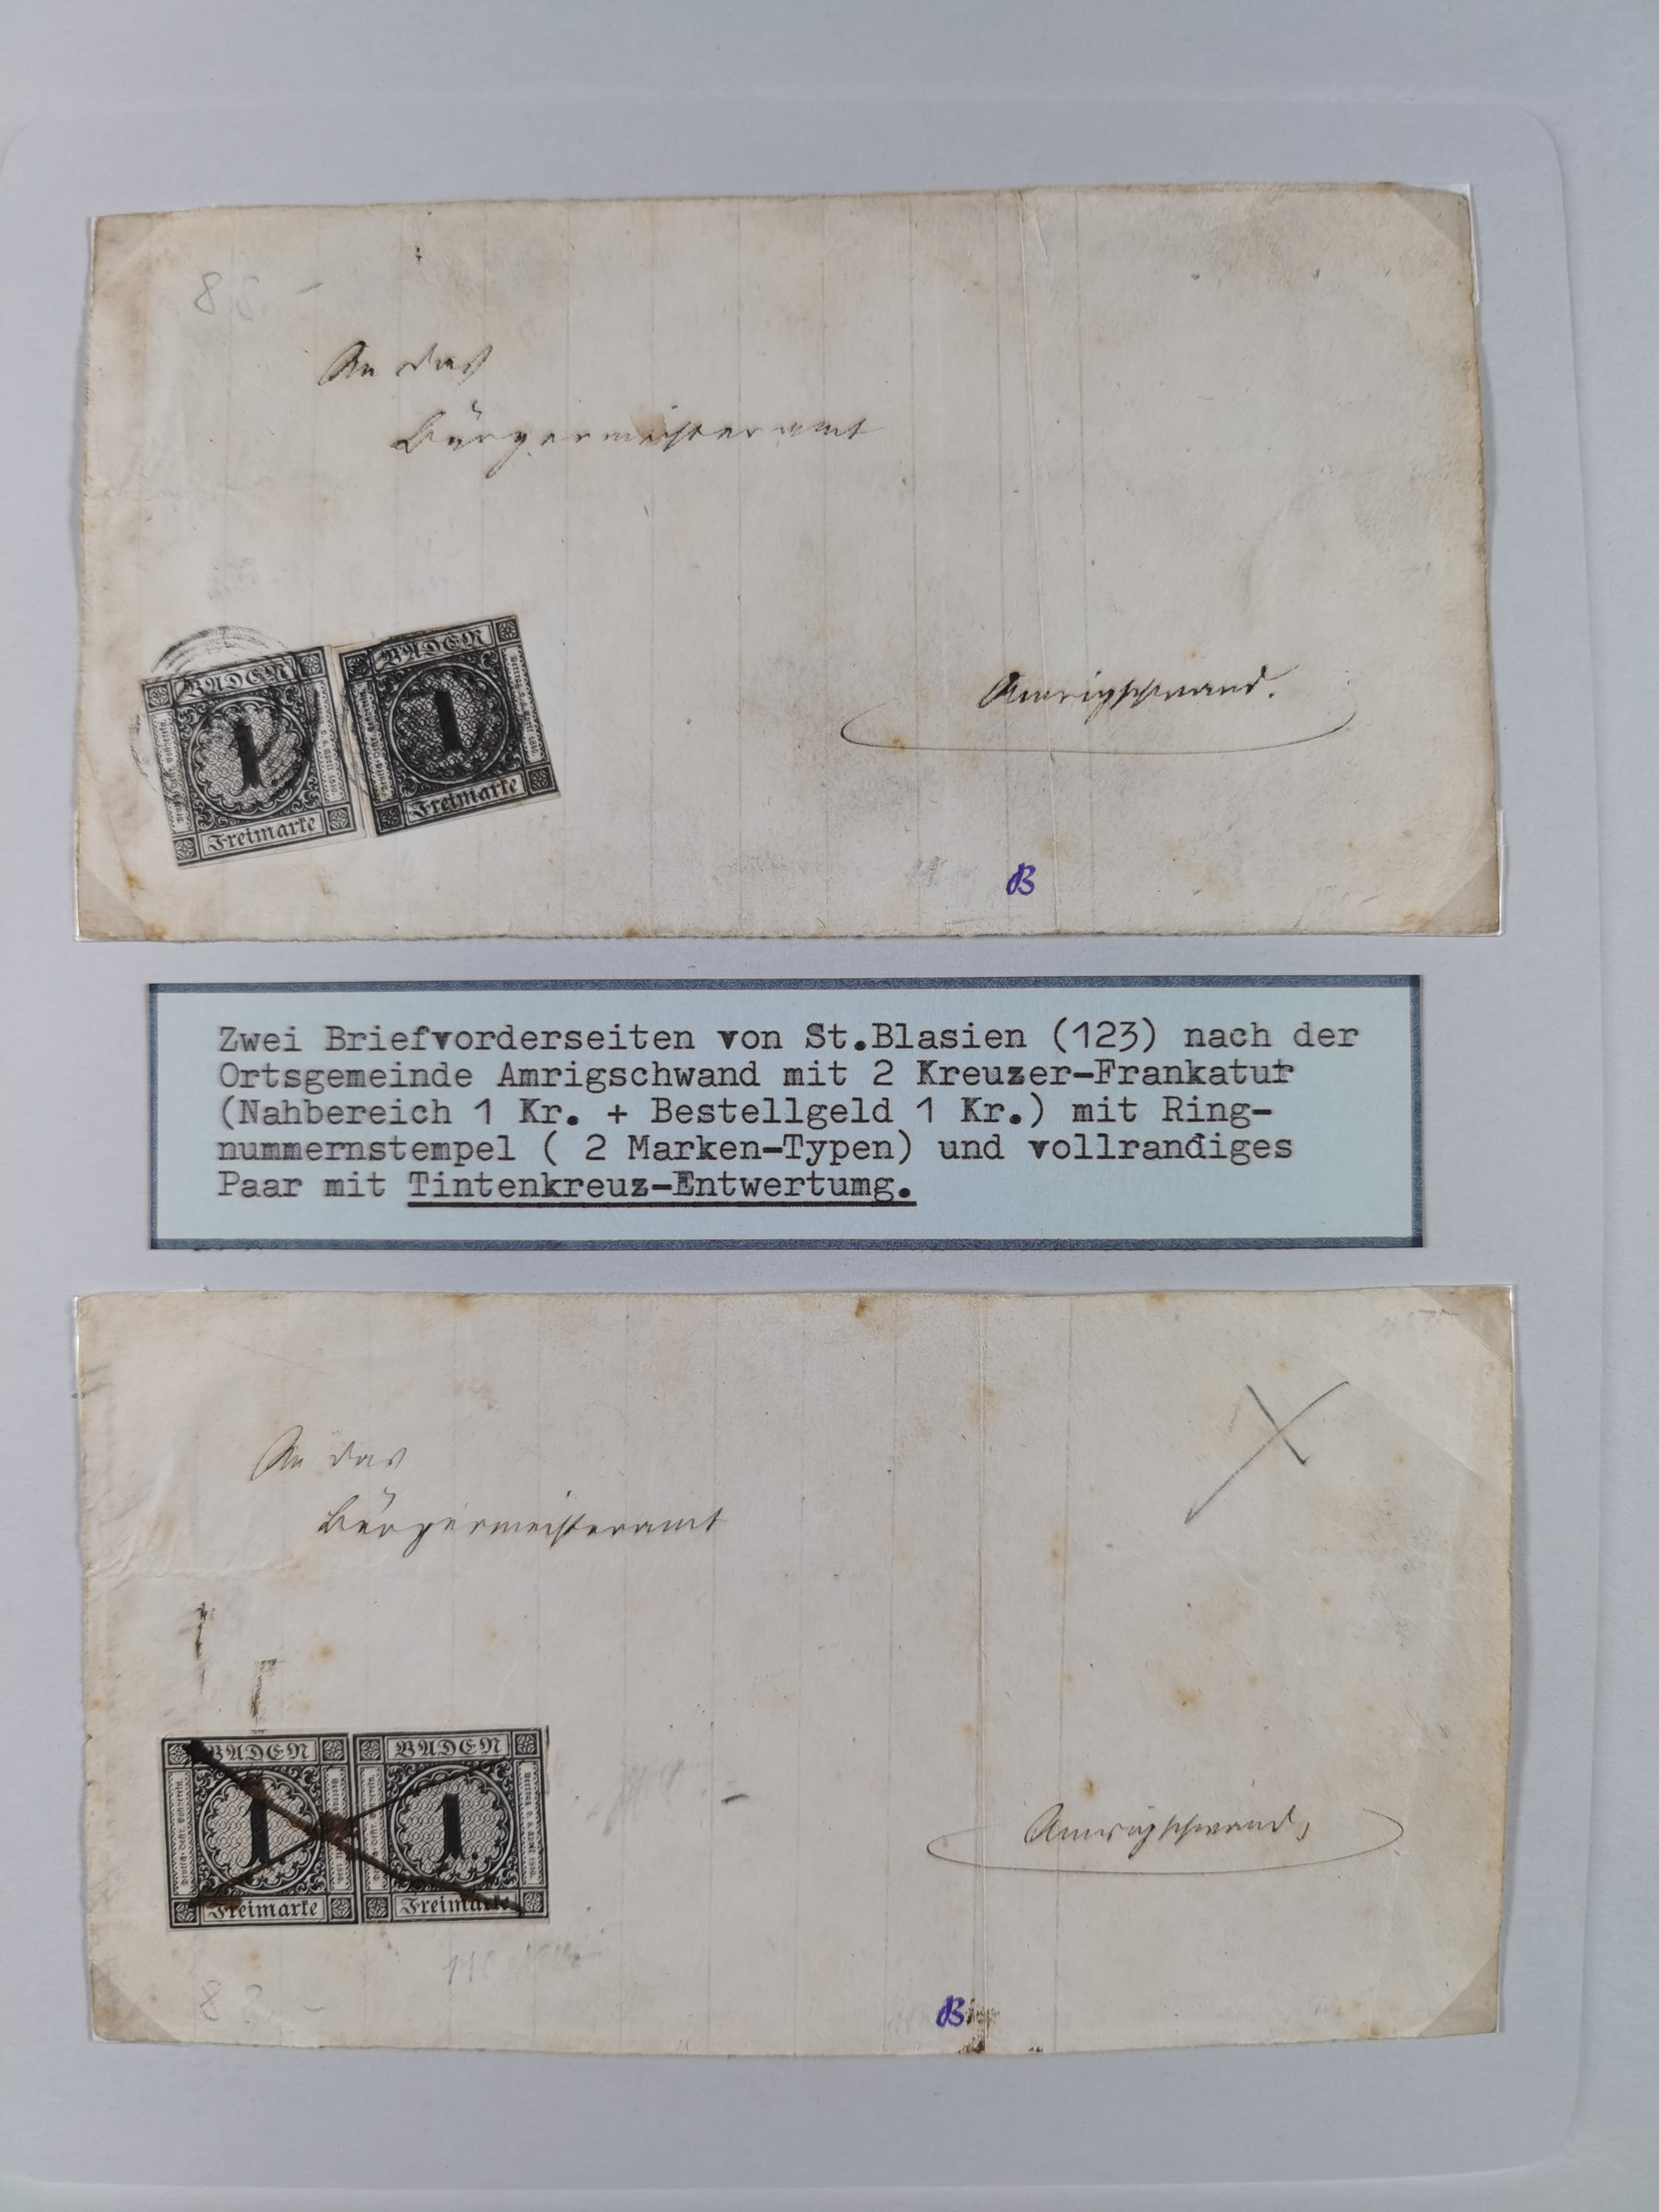 88.-
An das
Bürgermeisteramt
BADEN
1
Freimarke
BADEN
1
Freimarke
Amrigschwand.
B
Zwei Briefvorderseiten von St.Blasien (123) nach der
Ortsgemeinde Amrigschwand mit 2 Kreuzer-Frankatur
(Nahbereich 1 Kr. + Bestellgeld 1 Kr.) mit Ring-
nummernstempel ( 2 Marken-Typen) und vollrandiges
Paar mit Tintenkreuz-Entwertumg.
An das
Bürgermeisteramt
BADEN
1.
Freimarke
BADEN
1.
Freimarke
Amrigschwand,
B